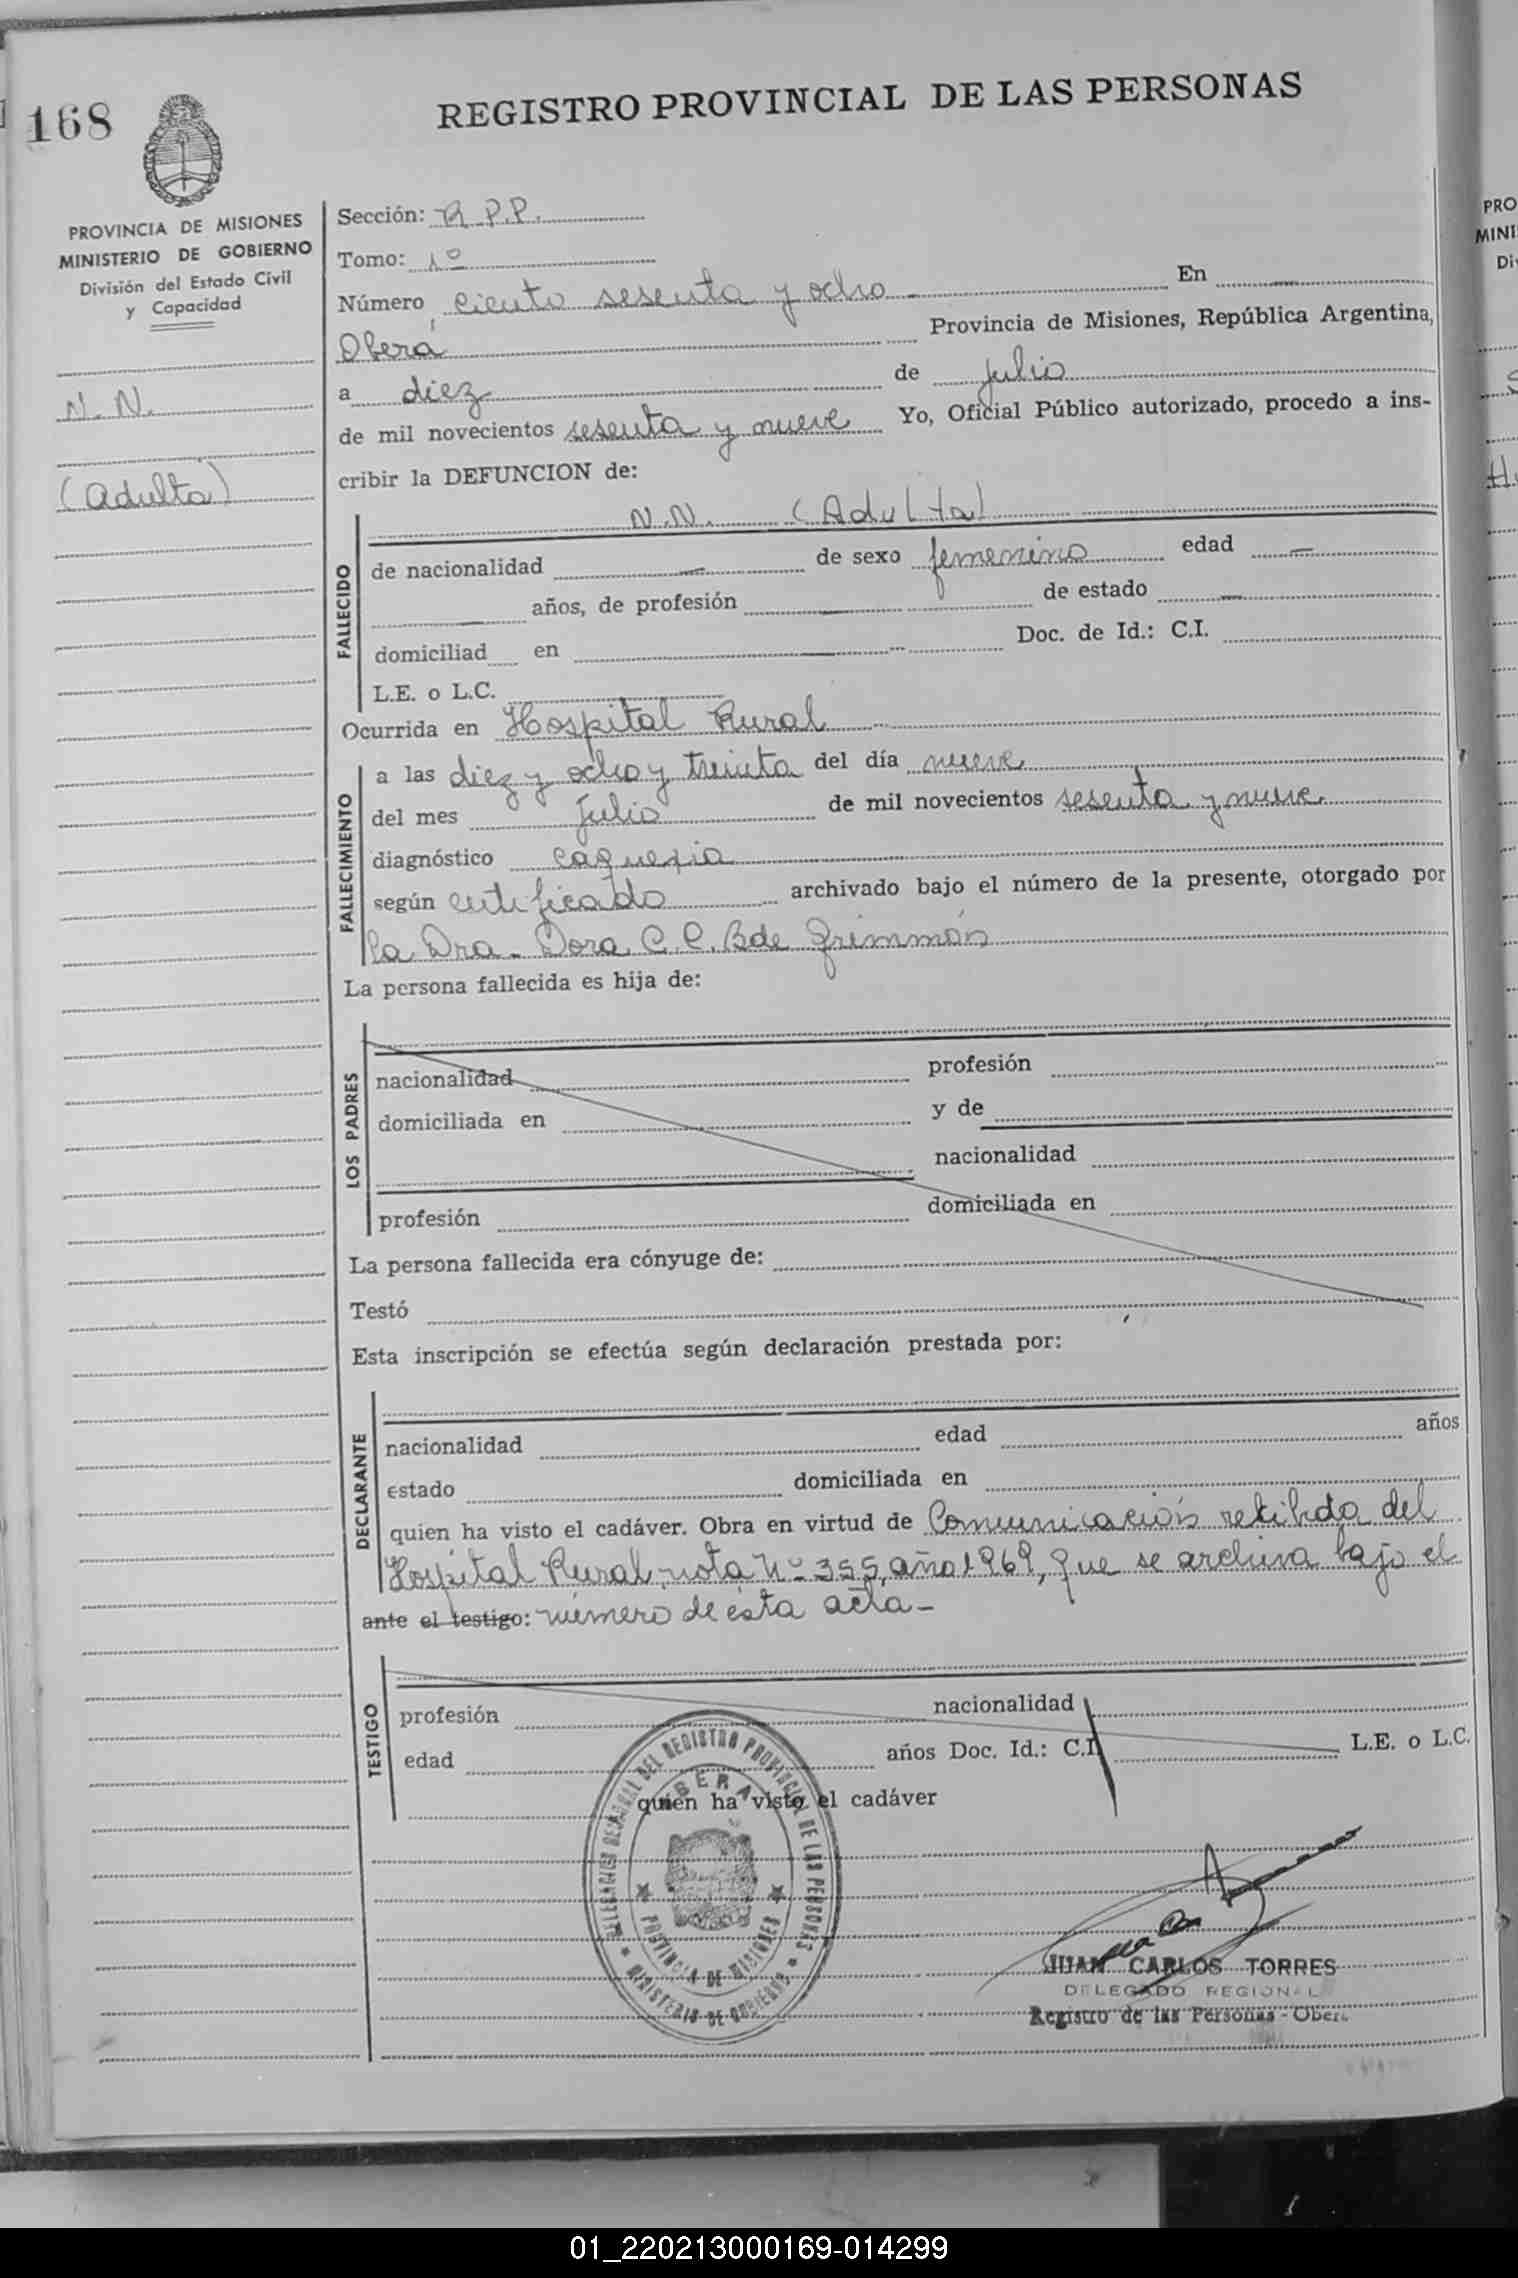 168
REGISTRO PROVINCIAL DE LAS PERSONAS
PROVINCIA DE MISIONES
MINISTERIO DE GOBIERNO
División del Estado Civil
y Capacidad
N.N.
(Adulta)
Sección: R.P.P.
Tomo: 1º
Número ciento sesenta y ocho En
Oberá Provincia de Misiones, República Argentina,
a diez de julio
de mil novecientos sesenta y nueve Yo, Oficial Público autorizado, procedo a ins-
cribir la DEFUNCION de:
N.N. (Adulta)
FALLECIDO
de nacionalidad — de sexo femenino edad —
— años, de profesión — de estado —
domiciliad en — Doc. de Id.: C.I.
L.E. o L.C.
Ocurrida en Hospital Rural
FALLECIMIENTO
a las diez y ocho y treinta del día nueve
del mes Julio de mil novecientos sesenta y nueve
diagnóstico caquexia
según certificado archivado bajo el número de la presente, otorgado por
la Dra. Dora C. C. B de
La persona fallecida es hija de:
LOS PADRES
nacionalidad profesión
domiciliada en y de
nacionalidad
profesión domiciliada en
La persona fallecida era cónyuge de:
Testó
Esta inscripción se efectúa según declaración prestada por:
DECLARANTE
nacionalidad edad años
estado domiciliada en
quien ha visto el cadáver. Obra en virtud de Comunicación recibida del
Hospital Rural, nota Nº 355, año 1969, que se archiva bajo el
ante el testigo: número de ésta acta-
TESTIGO
profesión nacionalidad
edad años Doc. Id.: C.I. L.E. o L.C.
quien ha visto el cadáver
DEL REGISTRO PROVINCIAL DE LAS PERSONAS
OBERA
PROVINCIA DE MISIONES
MINISTERIO DE GOBIERNO
JUAN CARLOS TORRES
DELEGADO REGIONAL
Registro de las Personas - Oberá
PRO
MINI
Di
01_220213000169-014299